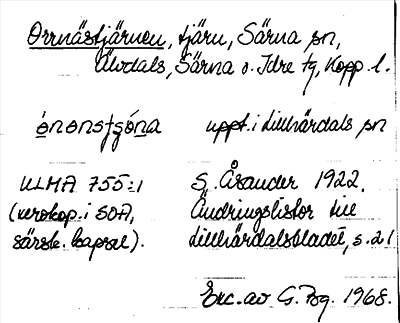 Orrnästjärnen, tjärn, Särna sn,
Älvdals, Särna o. Idre tg, Kopp. l.
uppt. i Lillhärdals sn
ULMA 755:1 S. Åsander 1922.
(xerokop. i SOA, Ändringslistor till
särsk. kapsel). Lillhärdalsbladet, s. 21
Exc. av G. Pg. 1968.